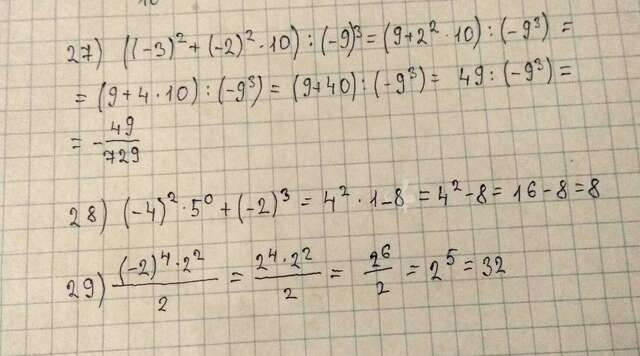 27) ((-3)² + (-2)² · 10) : (-9)³ = (9 + 2² · 10) : (-9³) =
= (9 + 4 · 10) : (-9³) = (9 + 40) : (-9³) = 49 : (-9³) =
= - 49/729
28) (-4)² · 5⁰ + (-2)³ = 4² · 1 - 8 = 4² - 8 = 16 - 8 = 8
29) (-2)⁴ · 2²/2 = 2⁴ · 2²/2 = 2⁶/2 = 2⁵ = 32